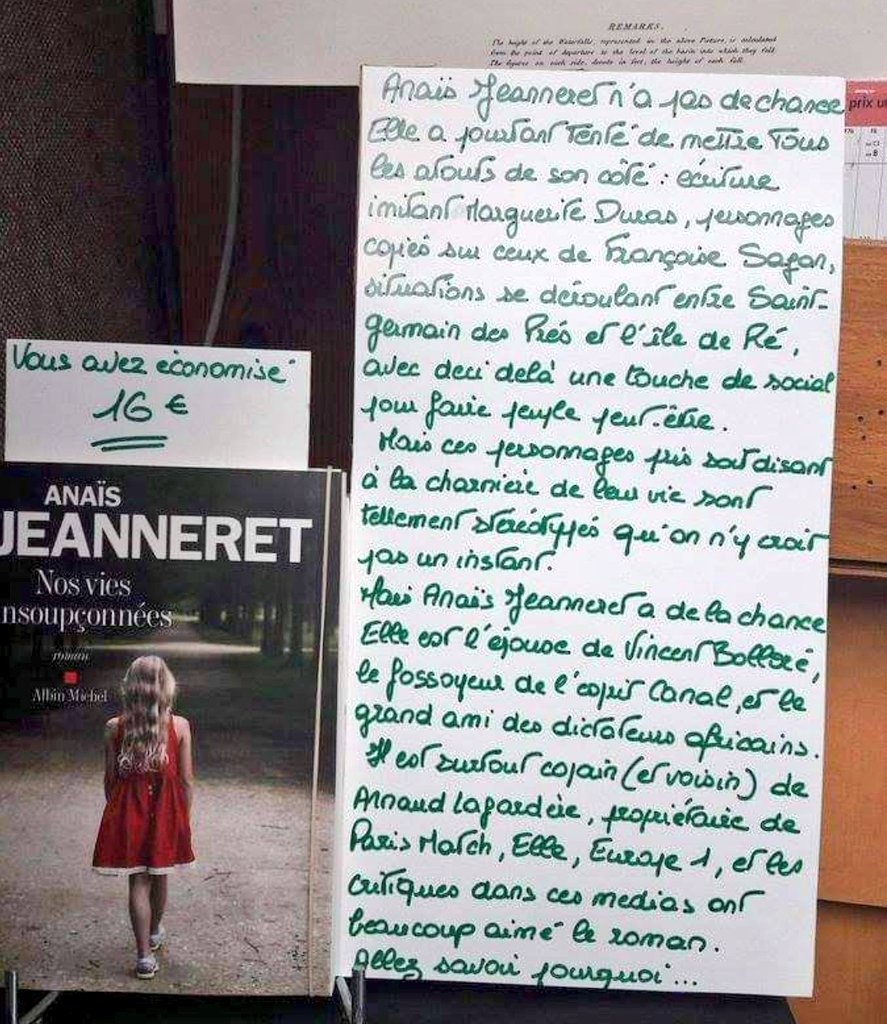 REMARKS.
The height of the Waterfalls, represented in the above Picture, is calculated
from the point of departure to the level of the basin into which they fall.
The figures on each side, denote in feet, the height of each fall.
Anaïs Jeanneret n'a pas de chance
Elle a pourtant tenté de mettre tous
les atouts de son côté : écriture
imitant Marguerite Duras, personnages
copiés sur ceux de Françoise Sagan,
situations se déroulant entre Saint-
germain des Prés et l'île de Ré,
avec deci delà une touche de social
pour faire peuple peut-être.
Mais ces personnages pris soit disant
à la charnière de leur vie sont
tellement stéréotypés qu'on n'y croit
pas un instant.
Mais Anaïs Jeanneret a de la chance
Elle est l'épouse de Vincent Bolloré,
le fossoyeur de l'esprit Canal, et le
grand ami des dictateurs africains.
Il est surtout copain (et voisin) de
Arnaud Lagardère, propriétaire de
Paris Match, Elle, Europe 1, et les
critiques dans ces medias ont
beaucoup aimé le roman.
Allez savoir pourquoi...
prix u
Vous avez économisé
16 €
ANAÏS
JEANNERET
Nos vies
insoupçonnées
roman
Albin Michel